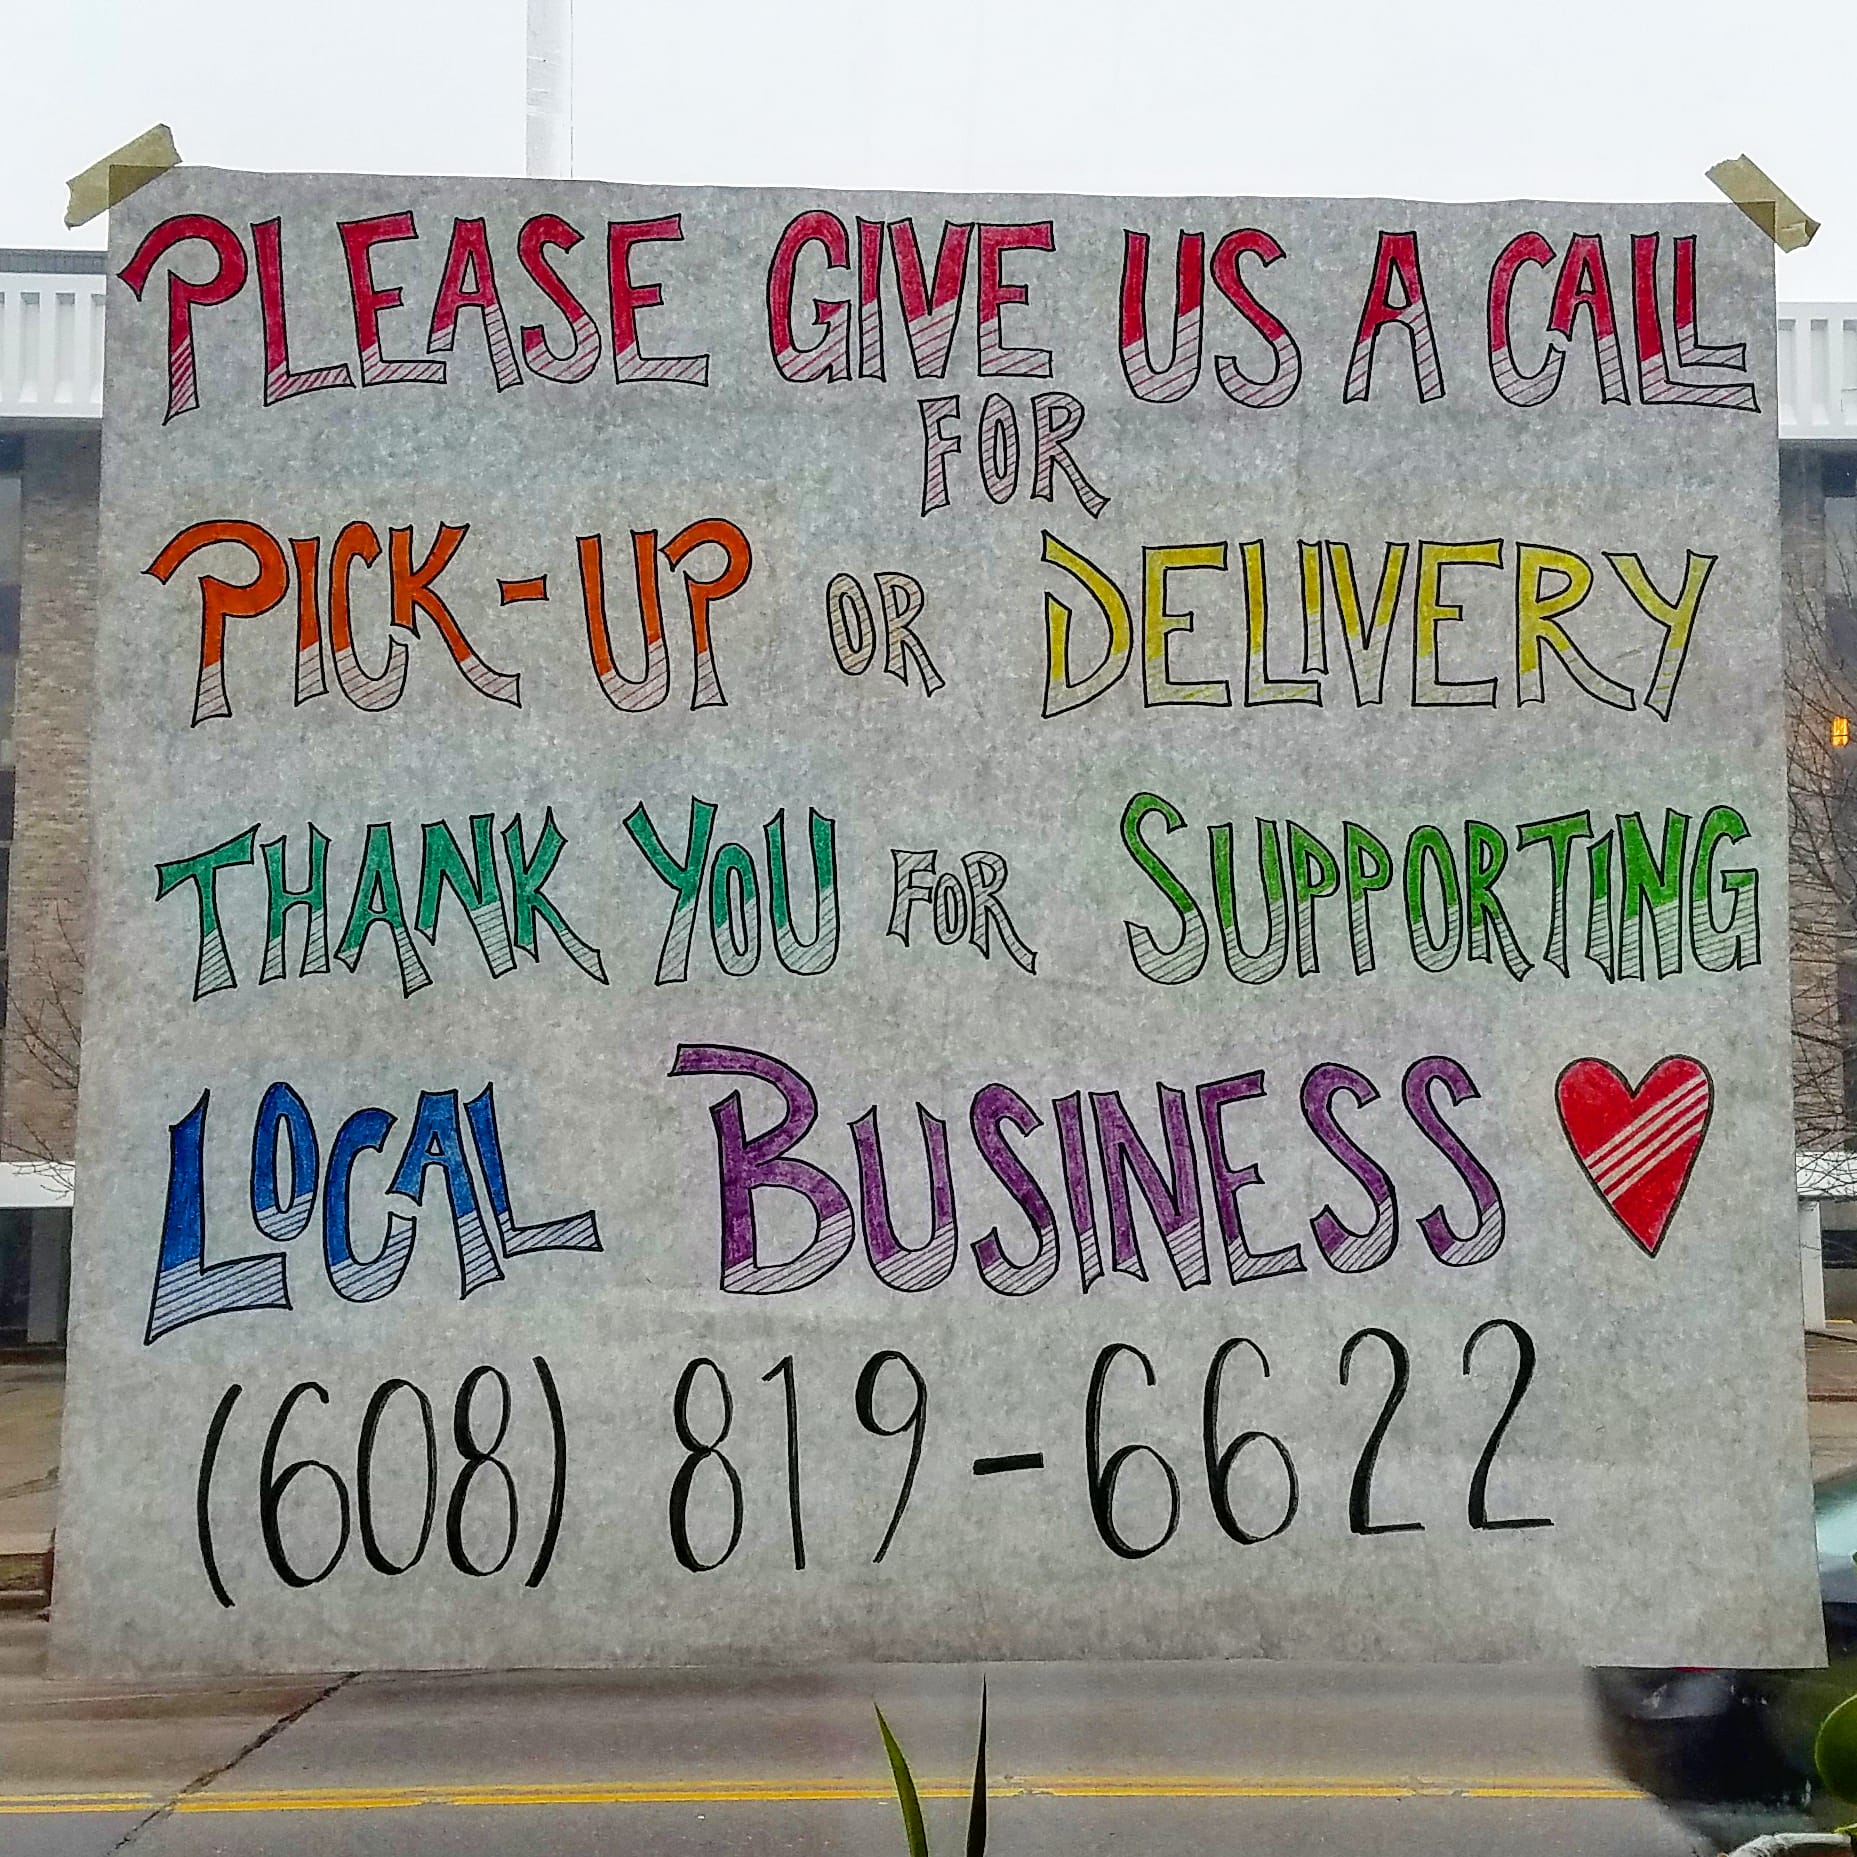 PLEASE GIVE US A CALL
FOR
PICK-UP OR DELIVERY
THANK YOU FOR SUPPORTING
LOCAL BUSINESS
(608) 819-6622